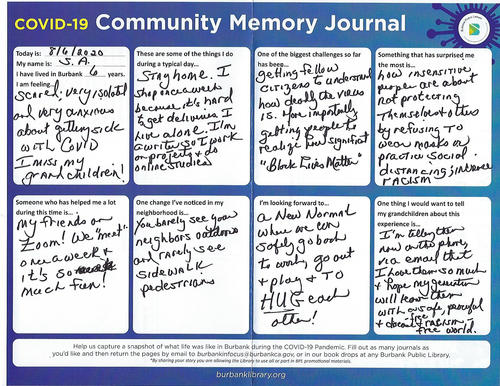 COVID-19 Community Memory Journal
Today is: 8/6/2020
My name is: S.A.
I have lived in Burbank 6 years.
I am feeling...
Scared, very isolated
and very anxious
about getting sick
with COVID
I miss my
grandchildren!
These are some of the things I do
during a typical day...
Stay home. I
shop once a week
because it's hard
to get deliveries I
live alone. I'm
a writer so I work
on projects & do
online studies
One of the biggest challenges so far
has been...
getting fellow
citizens to understand
how deadly the virus
is. More importantly,
getting people to
realize how significant
"Black Lives Matter"
Something that has surprised me
the most is...
how insensitive
people are about
not protecting
themselves & others
by refusing to
wear masks or
practice social
distancing
racism
Someone who has helped me a lot
during this time is...
My friends on
Zoom! We "meet"
once a week &
it's so
much fun!
One change I've noticed in my
neighborhood is...
You barely see your
neighbors outdoors
and rarely see
sidewalk
pedestrians
I'm looking forward to...
a New Normal
where we can
safely go back
to work, go out
& play & to
HUG each
other!
One thing I would want to tell
my grandchildren about this
experience is...
I'm telling them
now on the phone,
via email that
I love them so much
& hope my generation
will leave them
with a safe, peaceful
& racism-free
free world.
Help us capture a snapshot of what life was like in Burbank during the COVID-19 Pandemic. Fill out as many journals as
you'd like and then return the pages by email to burbankinfocus@burbankca.gov, or in our book drops at any Burbank Public Library.
*By sharing your story you are allowing the Library to use all or part in BPL promotional materials.
burbanklibrary.org